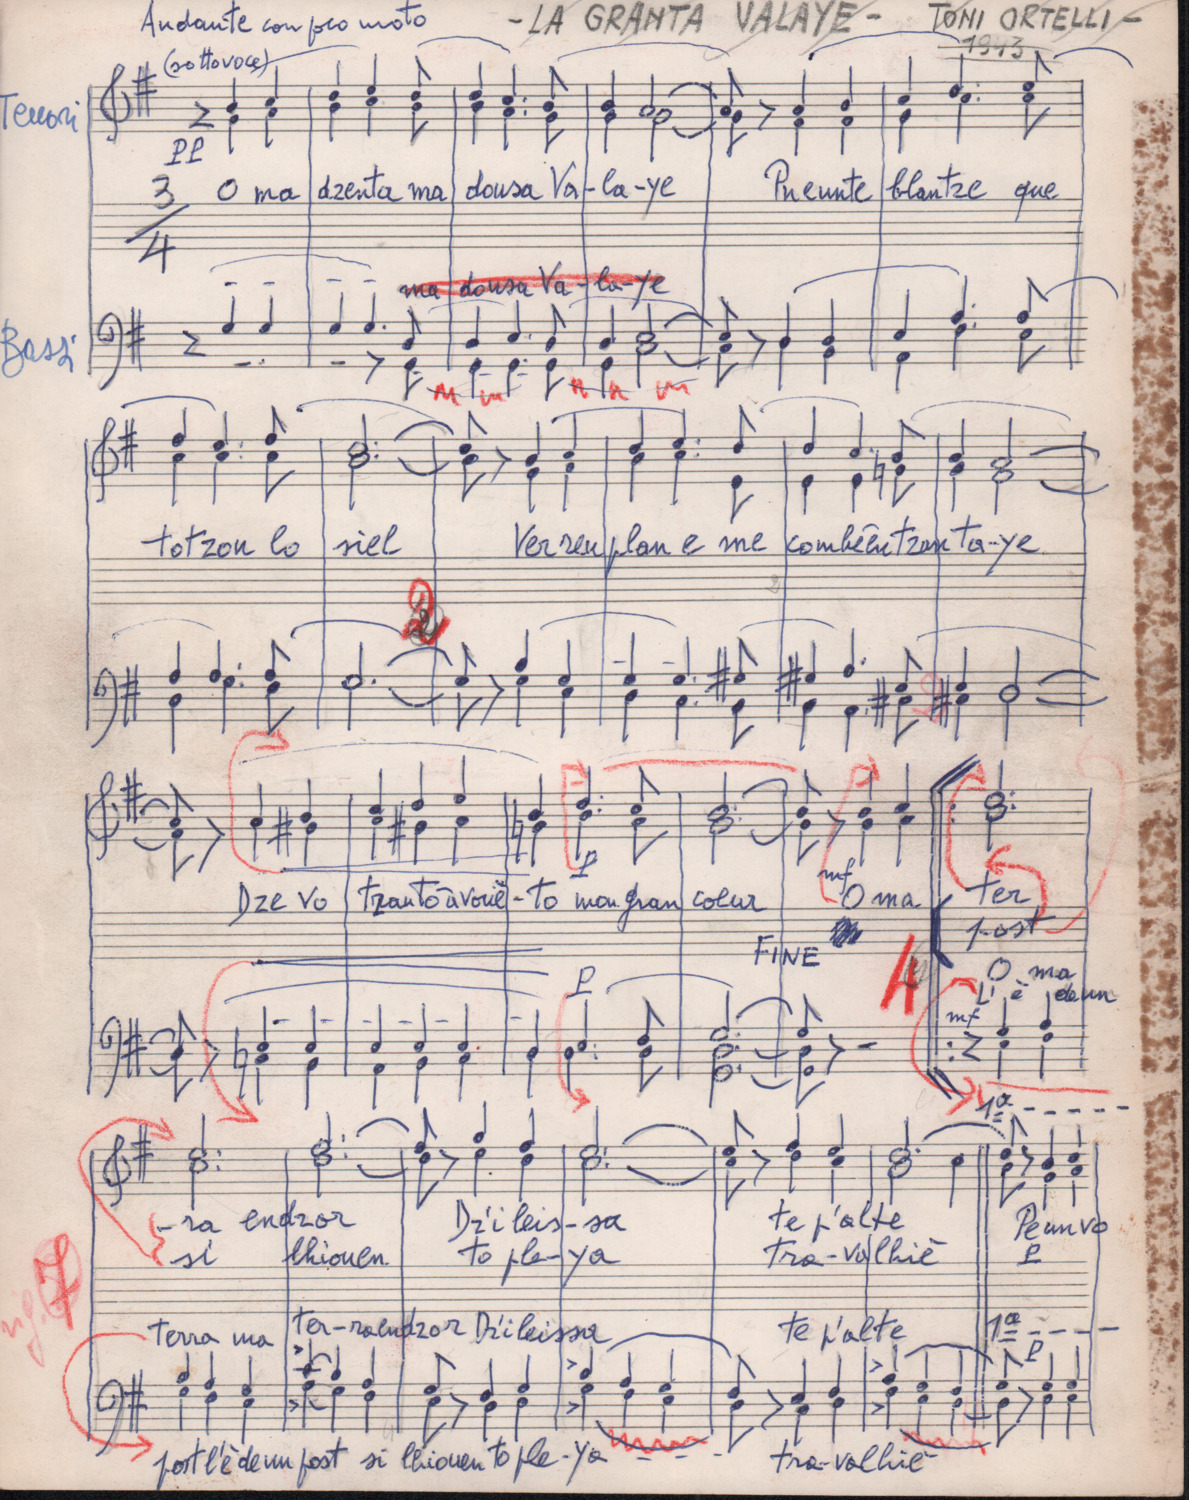 Andante con poco moto - LA GRANTA VALAYE - TONI ORTELLI -
(sottovoce) 1943
Tenori
PP
3/4
O ma dzenta ma dousa Va-la-ye Pneunte blantze que
ma dousa Va-la-ye
Bassi
totzon lo siel Verreu plan e me combêêntzon ta-ye
2
P
mf
Dze vo tzantö avoué-to mon gran coeur O ma ter
post
FINE 4
O ma
L'è deun
P mf
1ª
-ra endzor Dz'i leis-sa te p'alte Pëun vo
si lhiouen to ple-ya tra-valhiè P
7
terra ma ter-ra endzor Dz'i leissa te p'alte 1ª
P
post l'è deun post si lhiouen to ple-ya tra-valhiè